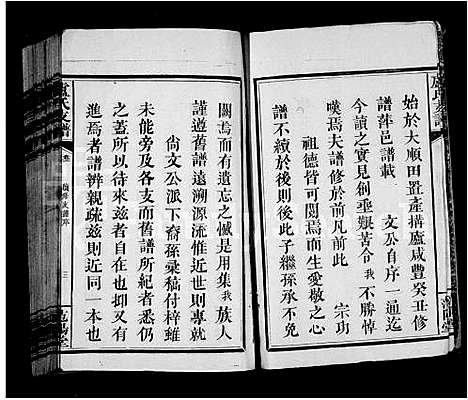 始於大順田置產搆廬咸豐癸丑修
譜萍邑譜載 文公自序一通迄
今讀之實見創垂艱苦令我不勝悼
嘆焉夫譜修於前凡前此 宗功
祖德皆可閱焉而生愛敬之心
譜不續於後則後此子繼孫承不免
闕焉而有遺忘之憾是用集我族人
謹遵舊譜遠溯源流惟近世則專
尚文公派下裔孫彙稿付梓雖
未能旁及各支而舊譜所紀者悉仍
之蓋所以待來茲者自在也抑又有
進焉者譜辨親疏茲則近同一本也
盧氏支譜
卷
三